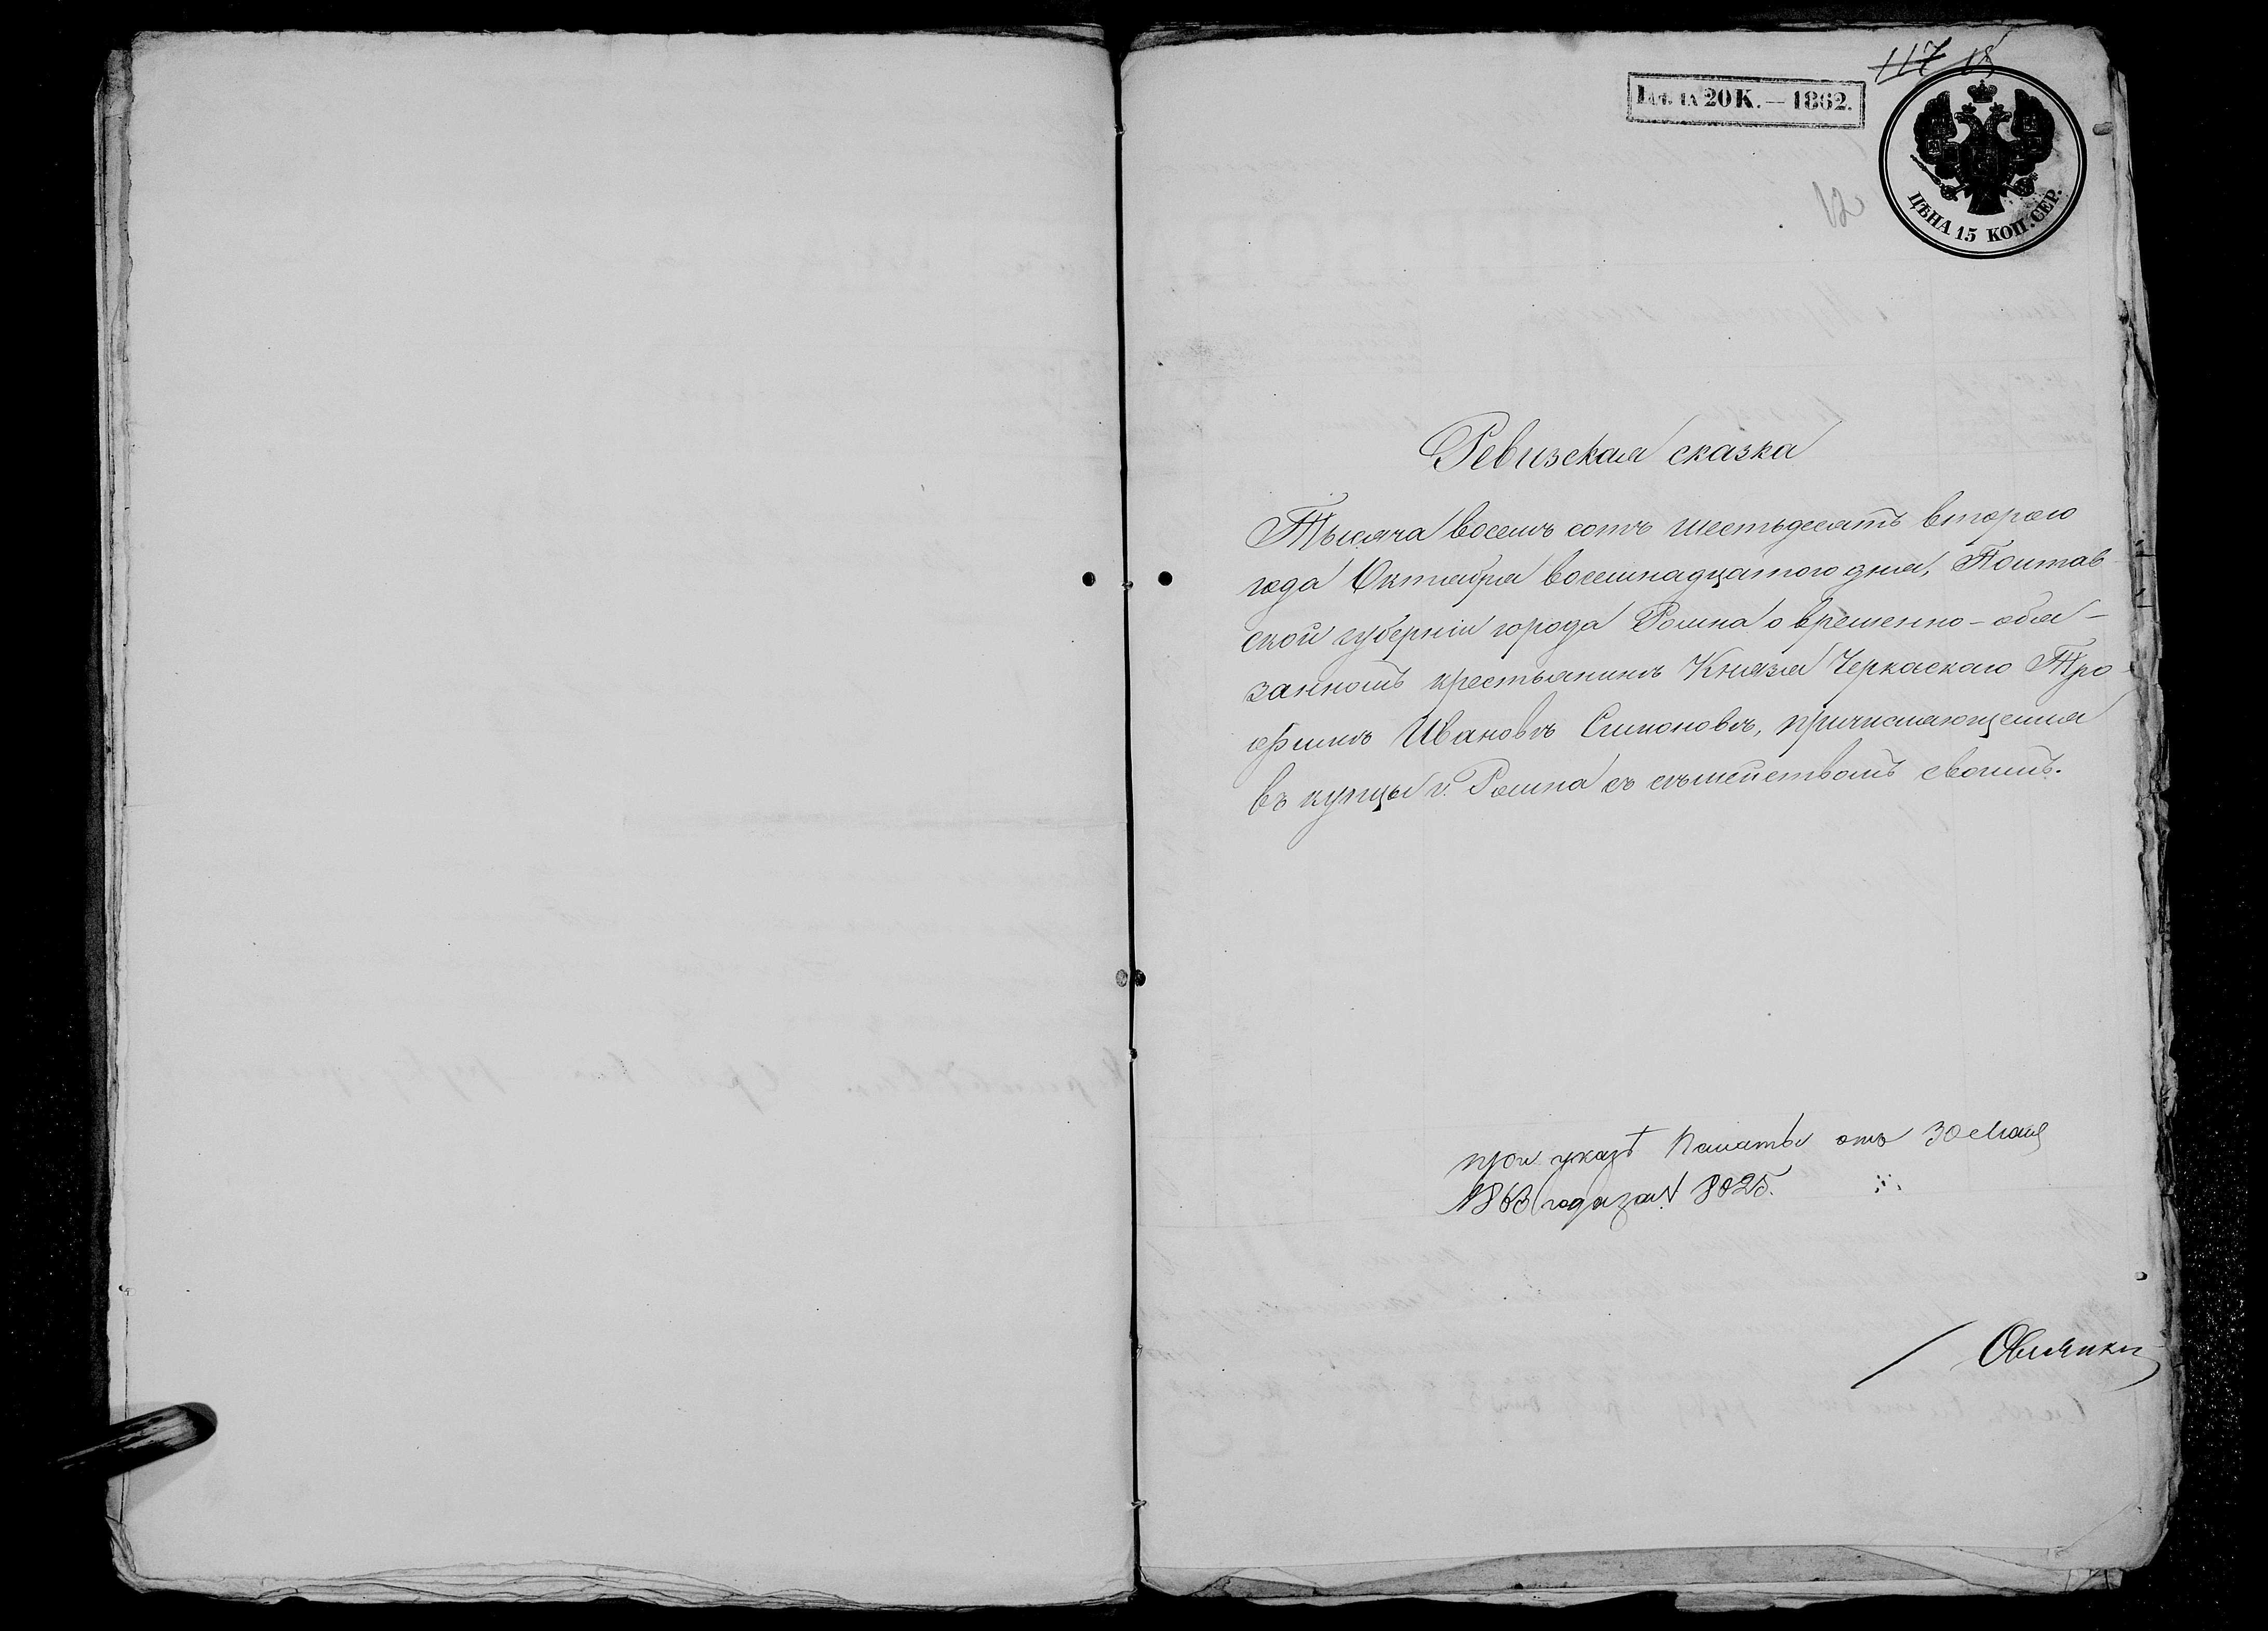 117 18
Цѣна 20 К. — 1862.
ЦѢНА 15 КОП. СЕР.
12
Ревизская сказка
Тысяча восемь сотъ шестьдесятъ втораго
года Октября восемнадцатого дня, Полтав-
ской губерніи города Ромна о временно-обя-
занномъ крестьянинѣ Князя Черкаскаго Тро-
фимѣ Ивановѣ Симоновѣ, причисляющемся
въ купцы г. Ромна съ сѣмействомъ своимъ.
при указѣ Палаты отъ 30 Мая
1863 года за № 8025.